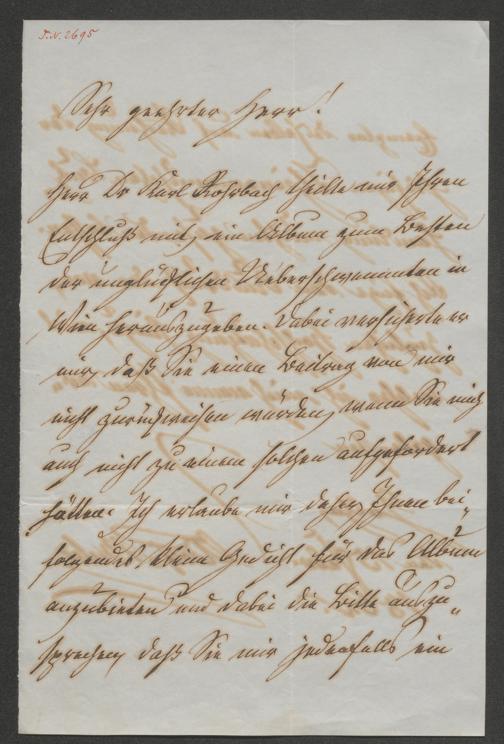 J.N. 2695
Sehr geehrter Herr!
Herr Dr Karl Rohrbach theilte mir Ihren
Entschluß mit, ein Album zum Besten
der unglücklichen Ueberschwemmten in
Wien herauszugeben. Dabei versicherte er
mir, daß Sie einen Beitrag von mir
nicht zurückweisen würden, wenn Sie mich
auch nicht zu einem solchen aufgefordert
hätten. Ich erlaube mir daher, Ihnen bei„
folgendes, kleine Gedicht für das Album
anzubieten und dabei die Bitte auszu„
sprechen, daß Sie mir jedenfalls ein